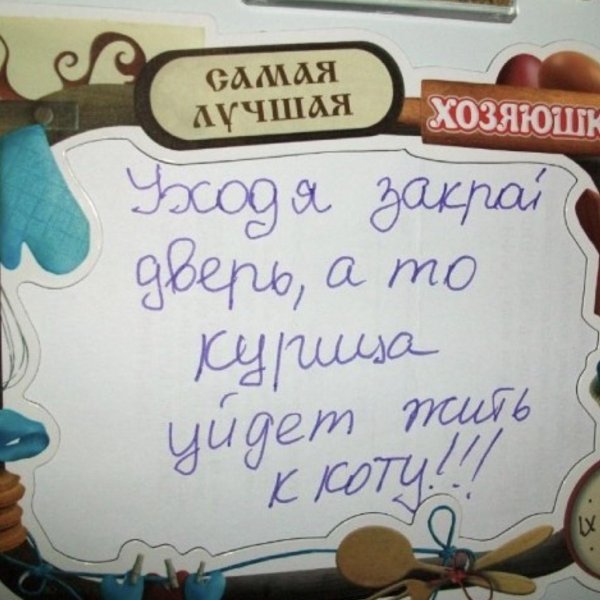 САМАЯ
ЛУЧШАЯ
ХОЗЯЮШК
Уходя закрай
дверь, а то
курица
уйдет жить
к коту!!!
IX